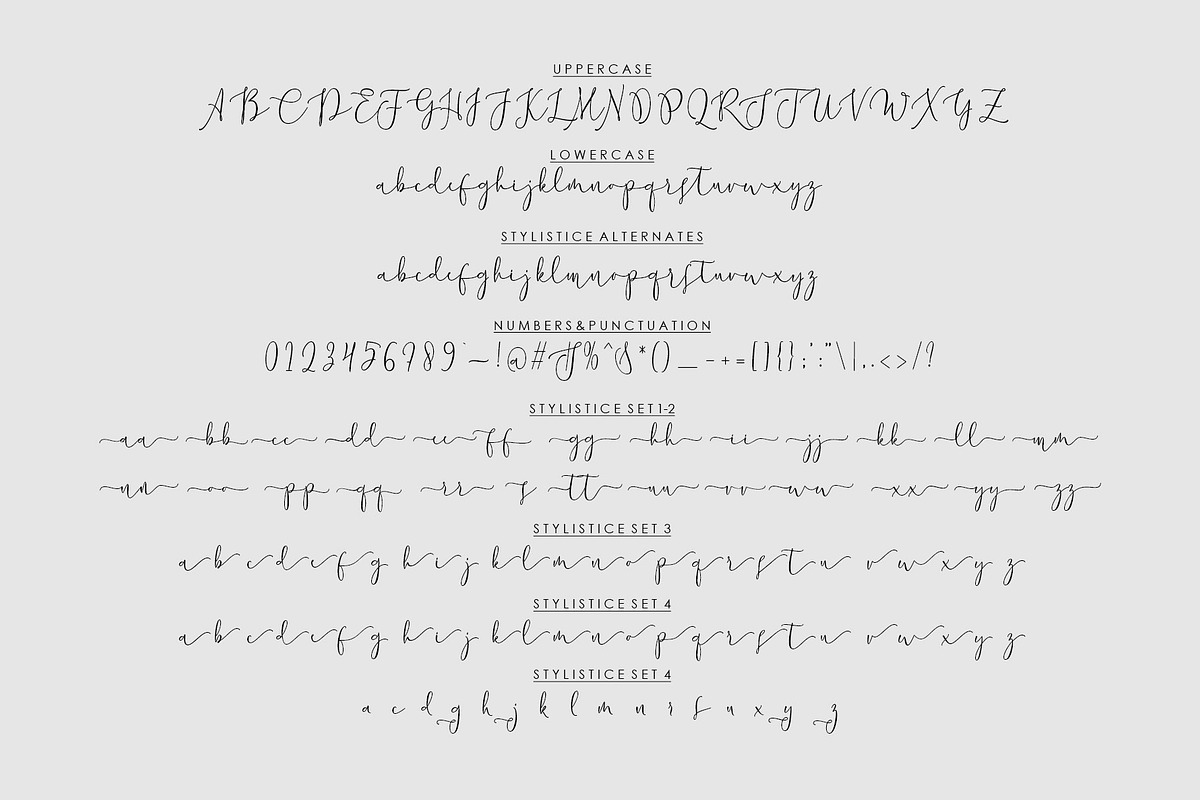 UPPERCASE
ABCDEFGHIJKLMNOPQRSTUVWXYZ
LOWERCASE
abcdefghijklmnopqrstuvwxyz
STYLISTICE ALTERNATES
abcdefghijklmnopqrstuvwxyz
NUMBERS&PUNCTUATION
0123456789`~!@#$%^&*()_-+=[]{};':"\|,.<>/?
STYLISTICE SET1-2
aa bb cc dd ee ff gg hh ii jj kk ll mm
nn oo pp qq rr s tt uu vv ww xx yy zz
STYLISTICE SET 3
a b c d e f g h i j k l m n o p q r s t u v w x y z
STYLISTICE SET 4
a b c d e f g h i j k l m n o p q r s t u v w x y z
STYLISTICE SET 4
a c d g h j k l m n r s u x y z